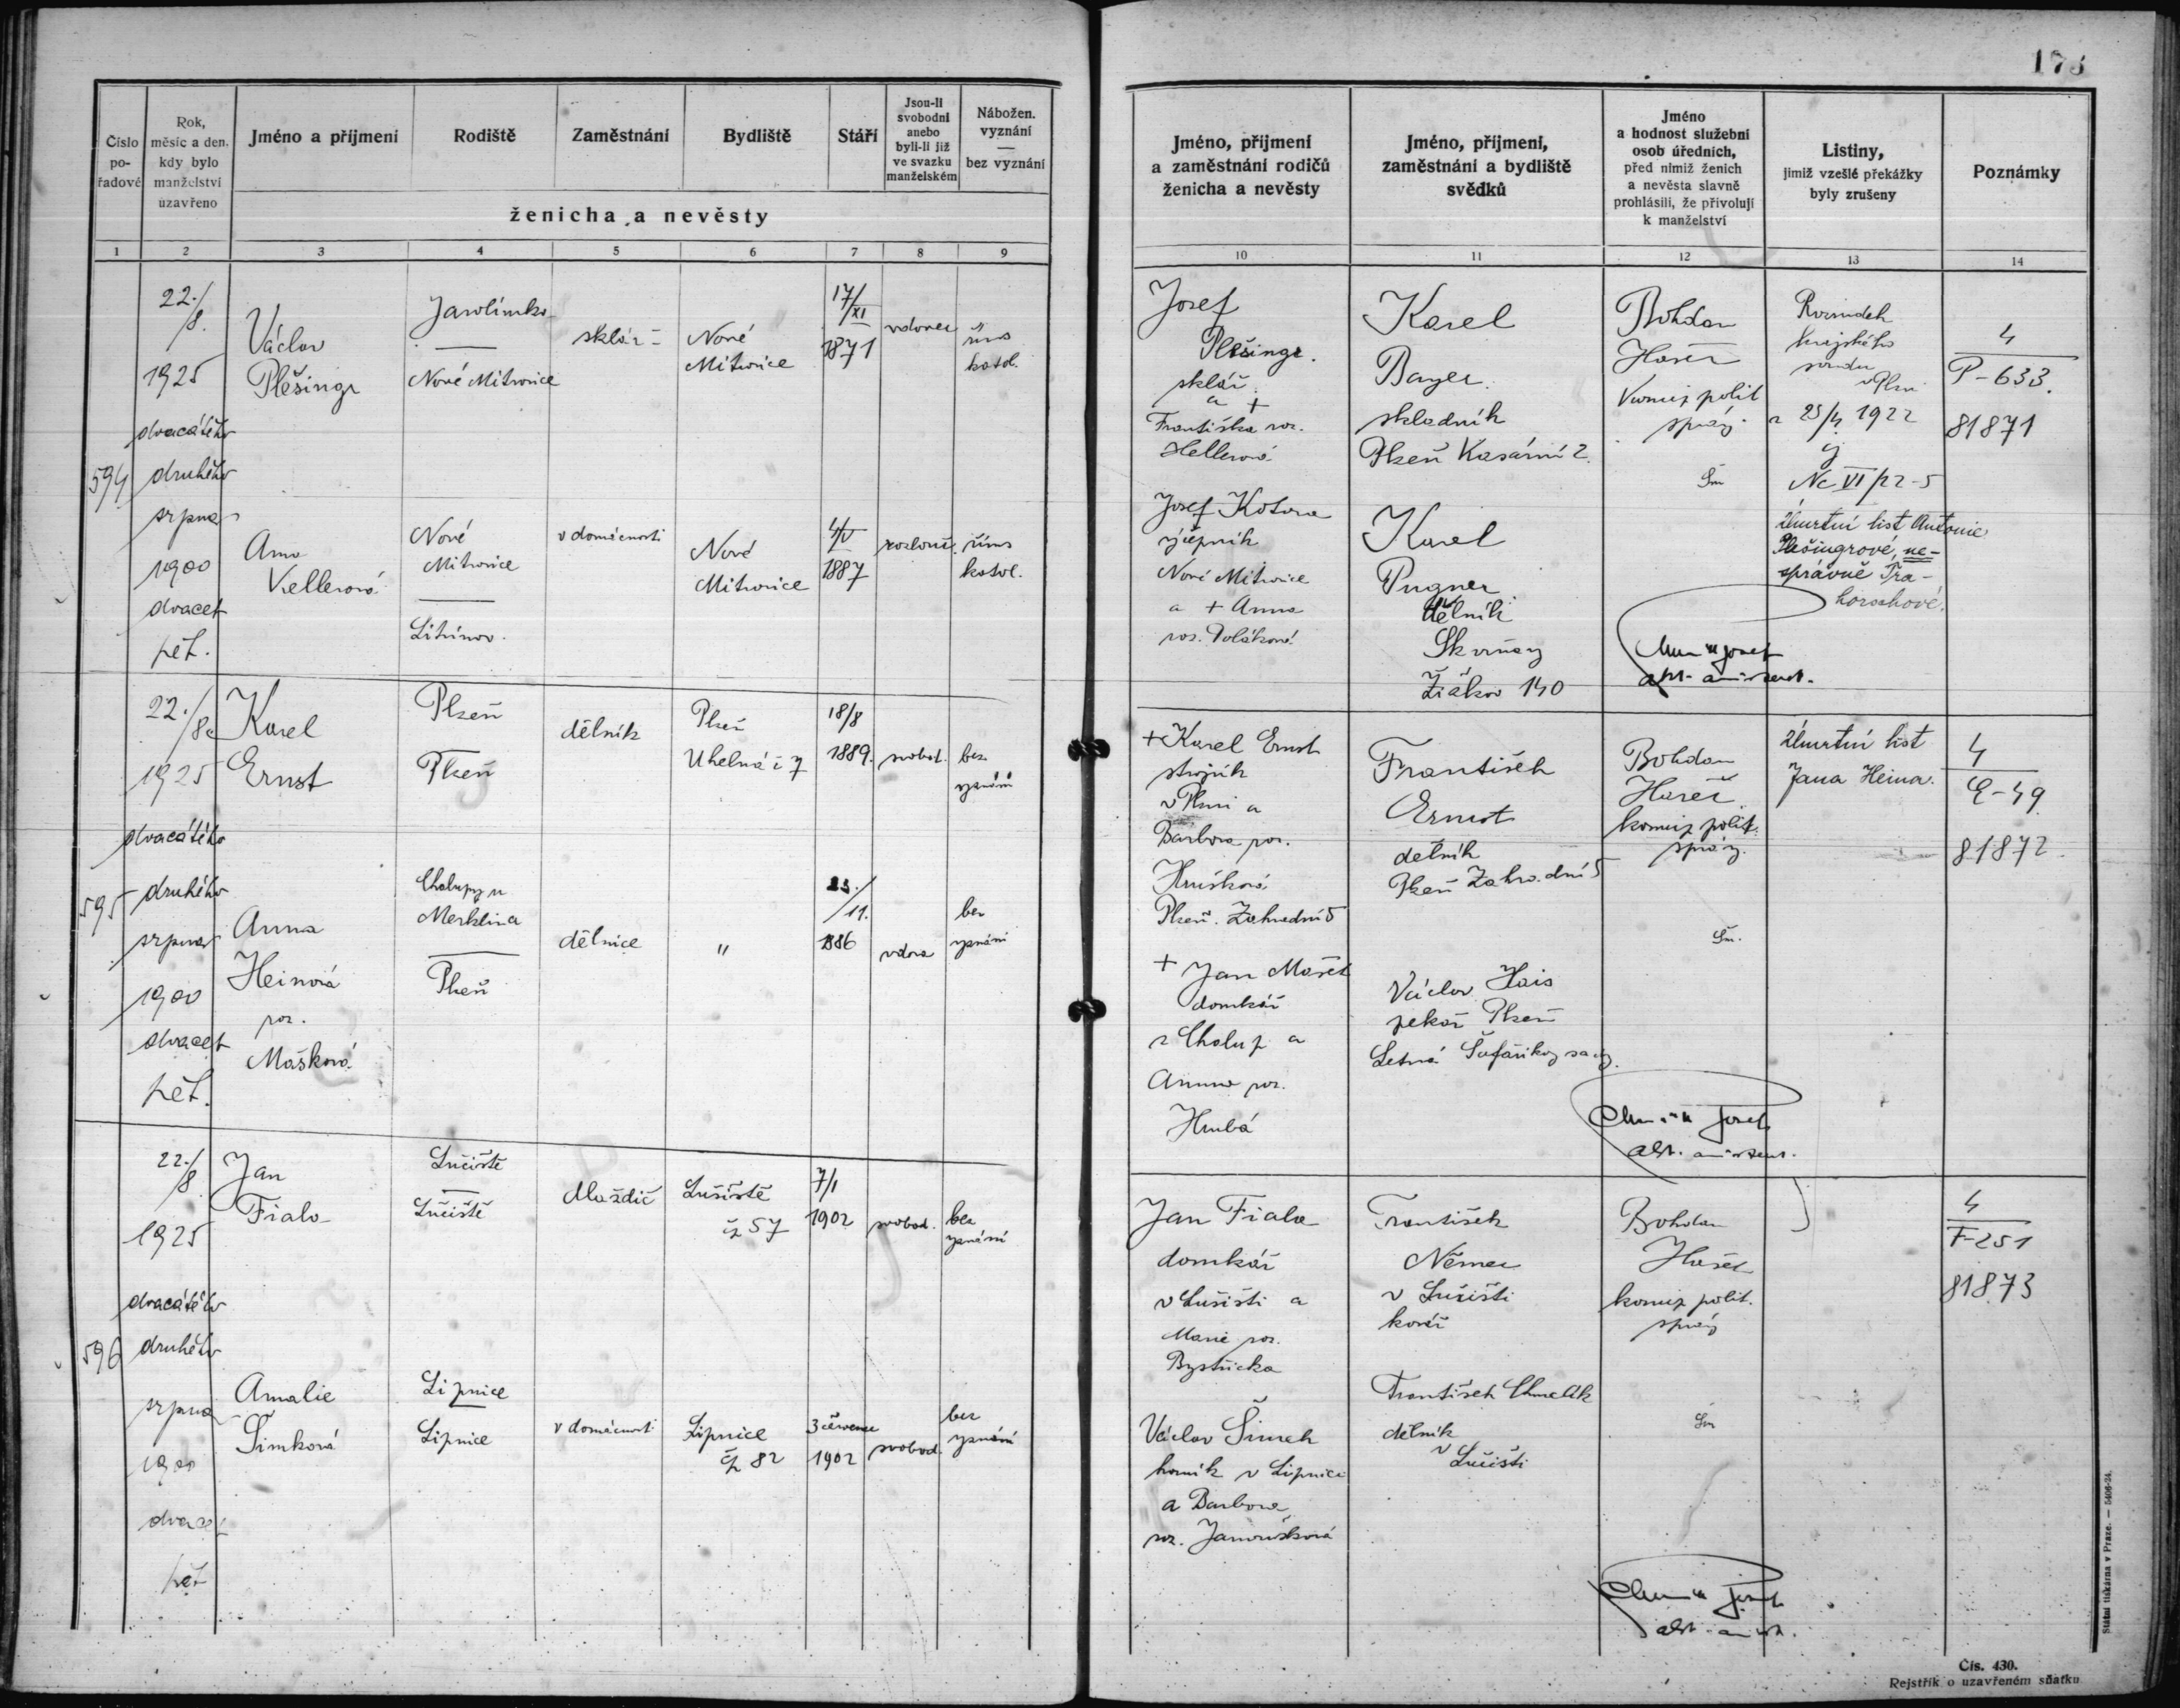 173
Číslo pořadové
Rok, měsíc a den, kdy bylo manželství uzavřeno
Jméno a příjmení
Rodiště
Zaměstnání
Bydliště
Stáří
Jsou-li svobodni anebo byli-li již ve svazku manželském
Nábožen. vyznání — bez vyznání
ženicha a nevěsty
Jméno, příjmení a zaměstnání rodičů ženicha a nevěsty
Jméno, příjmení, zaměstnání a bydliště svědků
Jméno a hodnost služební osob úředních, před nimiž ženich a nevěsta slavně prohlásili, že přivolují k manželství
Listiny, jimiž vzešlé překážky byly zrušeny
Poznámky
1 2 3 4 5 6 7 8 9 10 11 12 13 14
594
22./8.
1925
dvacátého
druhého
srpna
1900
dvacet
pět.
Václav
Plešingr
Nové Mitrovice
sklář
Nové
Mitrovice
17/XI
1871
vdovec
řím
katol.
Anna
Kellerová
Nové
Mitrovice
Litvínov.
v domácnosti
Nové
Mitrovice
4/V
1887
rozlouč.
řím
katol.
Josef
Plešingr.
sklář
a +
Františka roz.
Hellerová
Josef Kotora
Nové Mitrovice
a + Anna
roz. Poláková
Karel
Bayer.
skladník
Plzeň Kasární 2.
Karel
Pugner
dělník
Skvrňany
Žižkov 140
Bohdan
Hašek
polit
správy
Rozsudek
krajského
soudu
v Plzni
z 25/4 1922
čj
Nc VI/22-5
Úmrtní list Antonie
Plešingrové, ne-
správně
4
P-633.
81871
595
22./8.
1925
dvacátého
druhého
srpna
1900
dvacet
pět.
Karel
Ernst
Plzeň
Plzeň
dělník
Plzeň
Uhelná č 7
18/8
1889.
svobod.
bez
vyznání
Anna
Heinová
roz.
Mašková
Chalupy u
Merklína
Plzeň
dělnice
"
23./11.
1886
vdova
bez
vyznání
+ Karel Ernst
strojník
v Plzni a
Barbora roz.
Hrušková
Plzeň. Zahradní 5
+ Jan Mašek
domkář
z Chalup a
Anna roz.
Hrubá
František
Ernst
dělník
Plzeň Zahradní 5
Václav Hais
pekař Plzeň
Letná
Bohdan
Hašek
komis polit.
správy.
Úmrtní list
Jana Heina.
4
E-49
81872
596
22./8
1925
dvacátého
druhého
srpna
1900
dvacet
pět
Jan
Fiala
Lučiště
Lučiště
Lučiště
čp 57
7/I
1902
svobod.
bez
vyznání
Amalie
Šimková
Lipnice
Lipnice
v domácnosti
Lipnice
čp 82
3 července
1902
svobod.
bez
vyznání
Jan Fiala
domkář
v Lučišti a
Marie roz.
Bystřická
Václav Šimek
horník v Lipnici
a Barbora
roz. Janoušková
František
Němec
v Lučišti
kovář
František Chmelík
dělník
v Lučišti
Bohdan
Hašek
komis polit.
správy
4
F-251
81873
Státní tiskárna v Praze. — 5406-24.
Čís. 430.
Rejstřík o uzavřeném sňatku